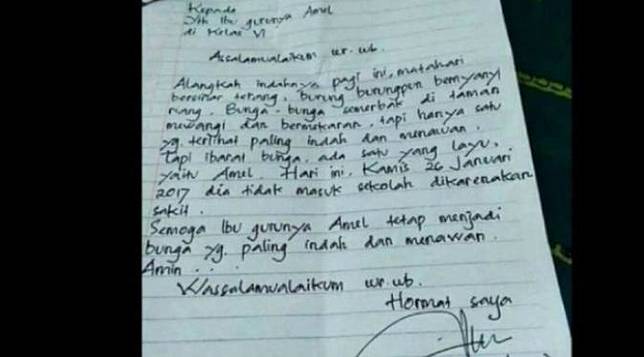 Kepada
Yth Ibu gurunya Amel
di Kelas VI
Assalamualaikum wr. wb.
Alangkah indahnya pagi ini, matahari
bersinar terang, burung burungpun bernyanyi
riang. Bunga-bunga semerbak di taman
mewangi dan bermekaran, tapi hanya satu
yg. terlihat paling indah dan menawan.
Tapi ibarat bunga, ada satu yang layu,
yaitu Amel. Hari ini, Kamis 26 Januari
2017 dia tidak masuk sekolah dikarenakan
sakit.
Semoga Ibu gurunya Amel tetap menjadi
bunga yg. paling indah dan menawan.
Amin . . .
Wassalamualaikum wr. wb.
Hormat saya